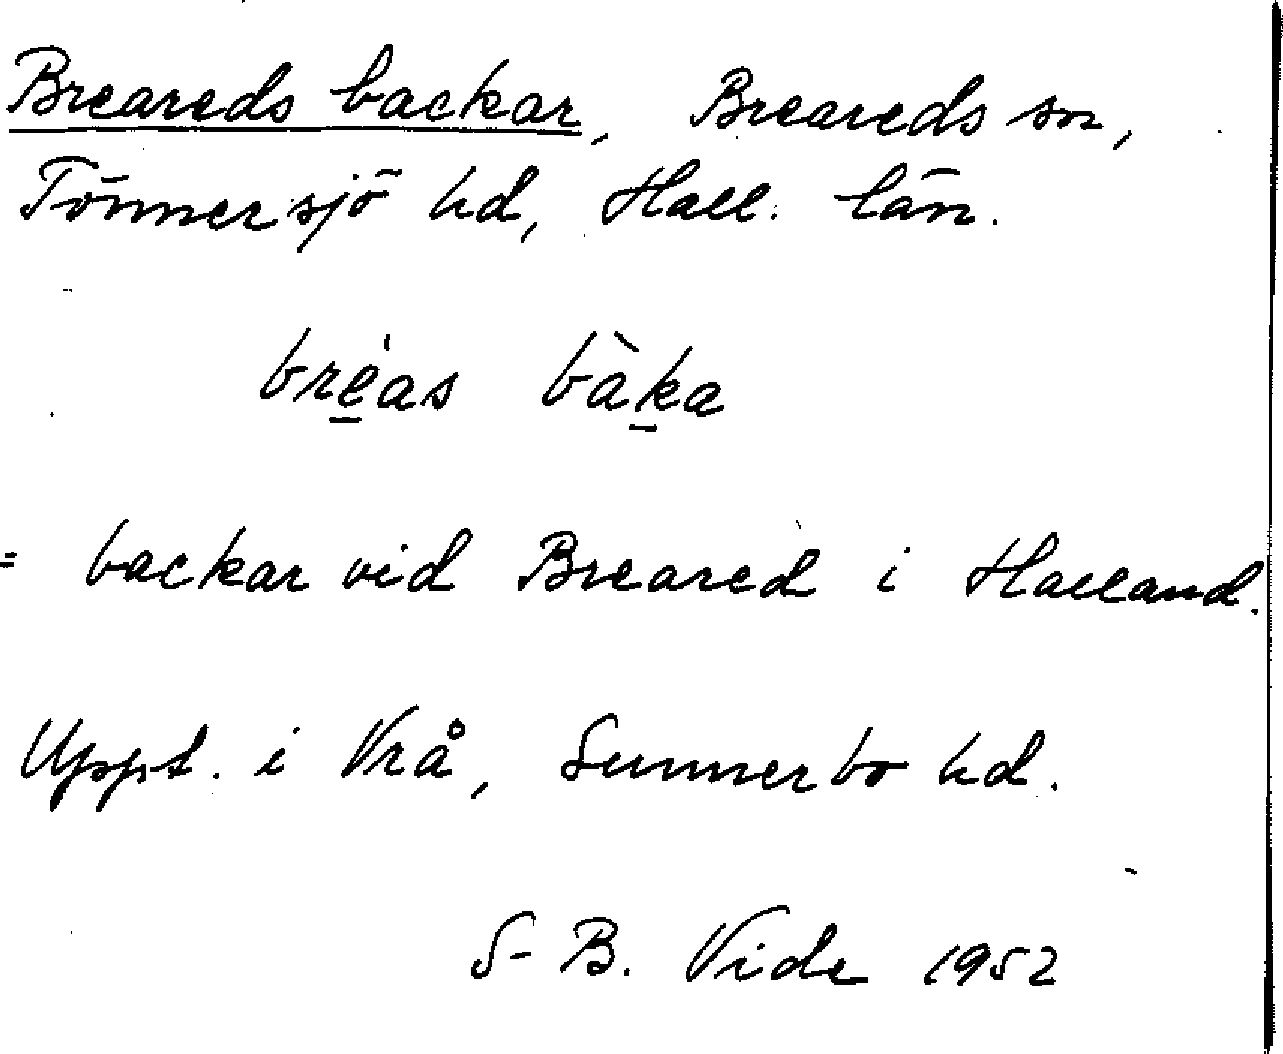 Breareds backar, Breareds sn,
Tönnersjö hd, Hall. län.
bre̲ ́as bàk̲a
= backar vid Breared i Halland.
Uppt. i Vrå, Sunnerbo hd.
S-B. Vide 1952